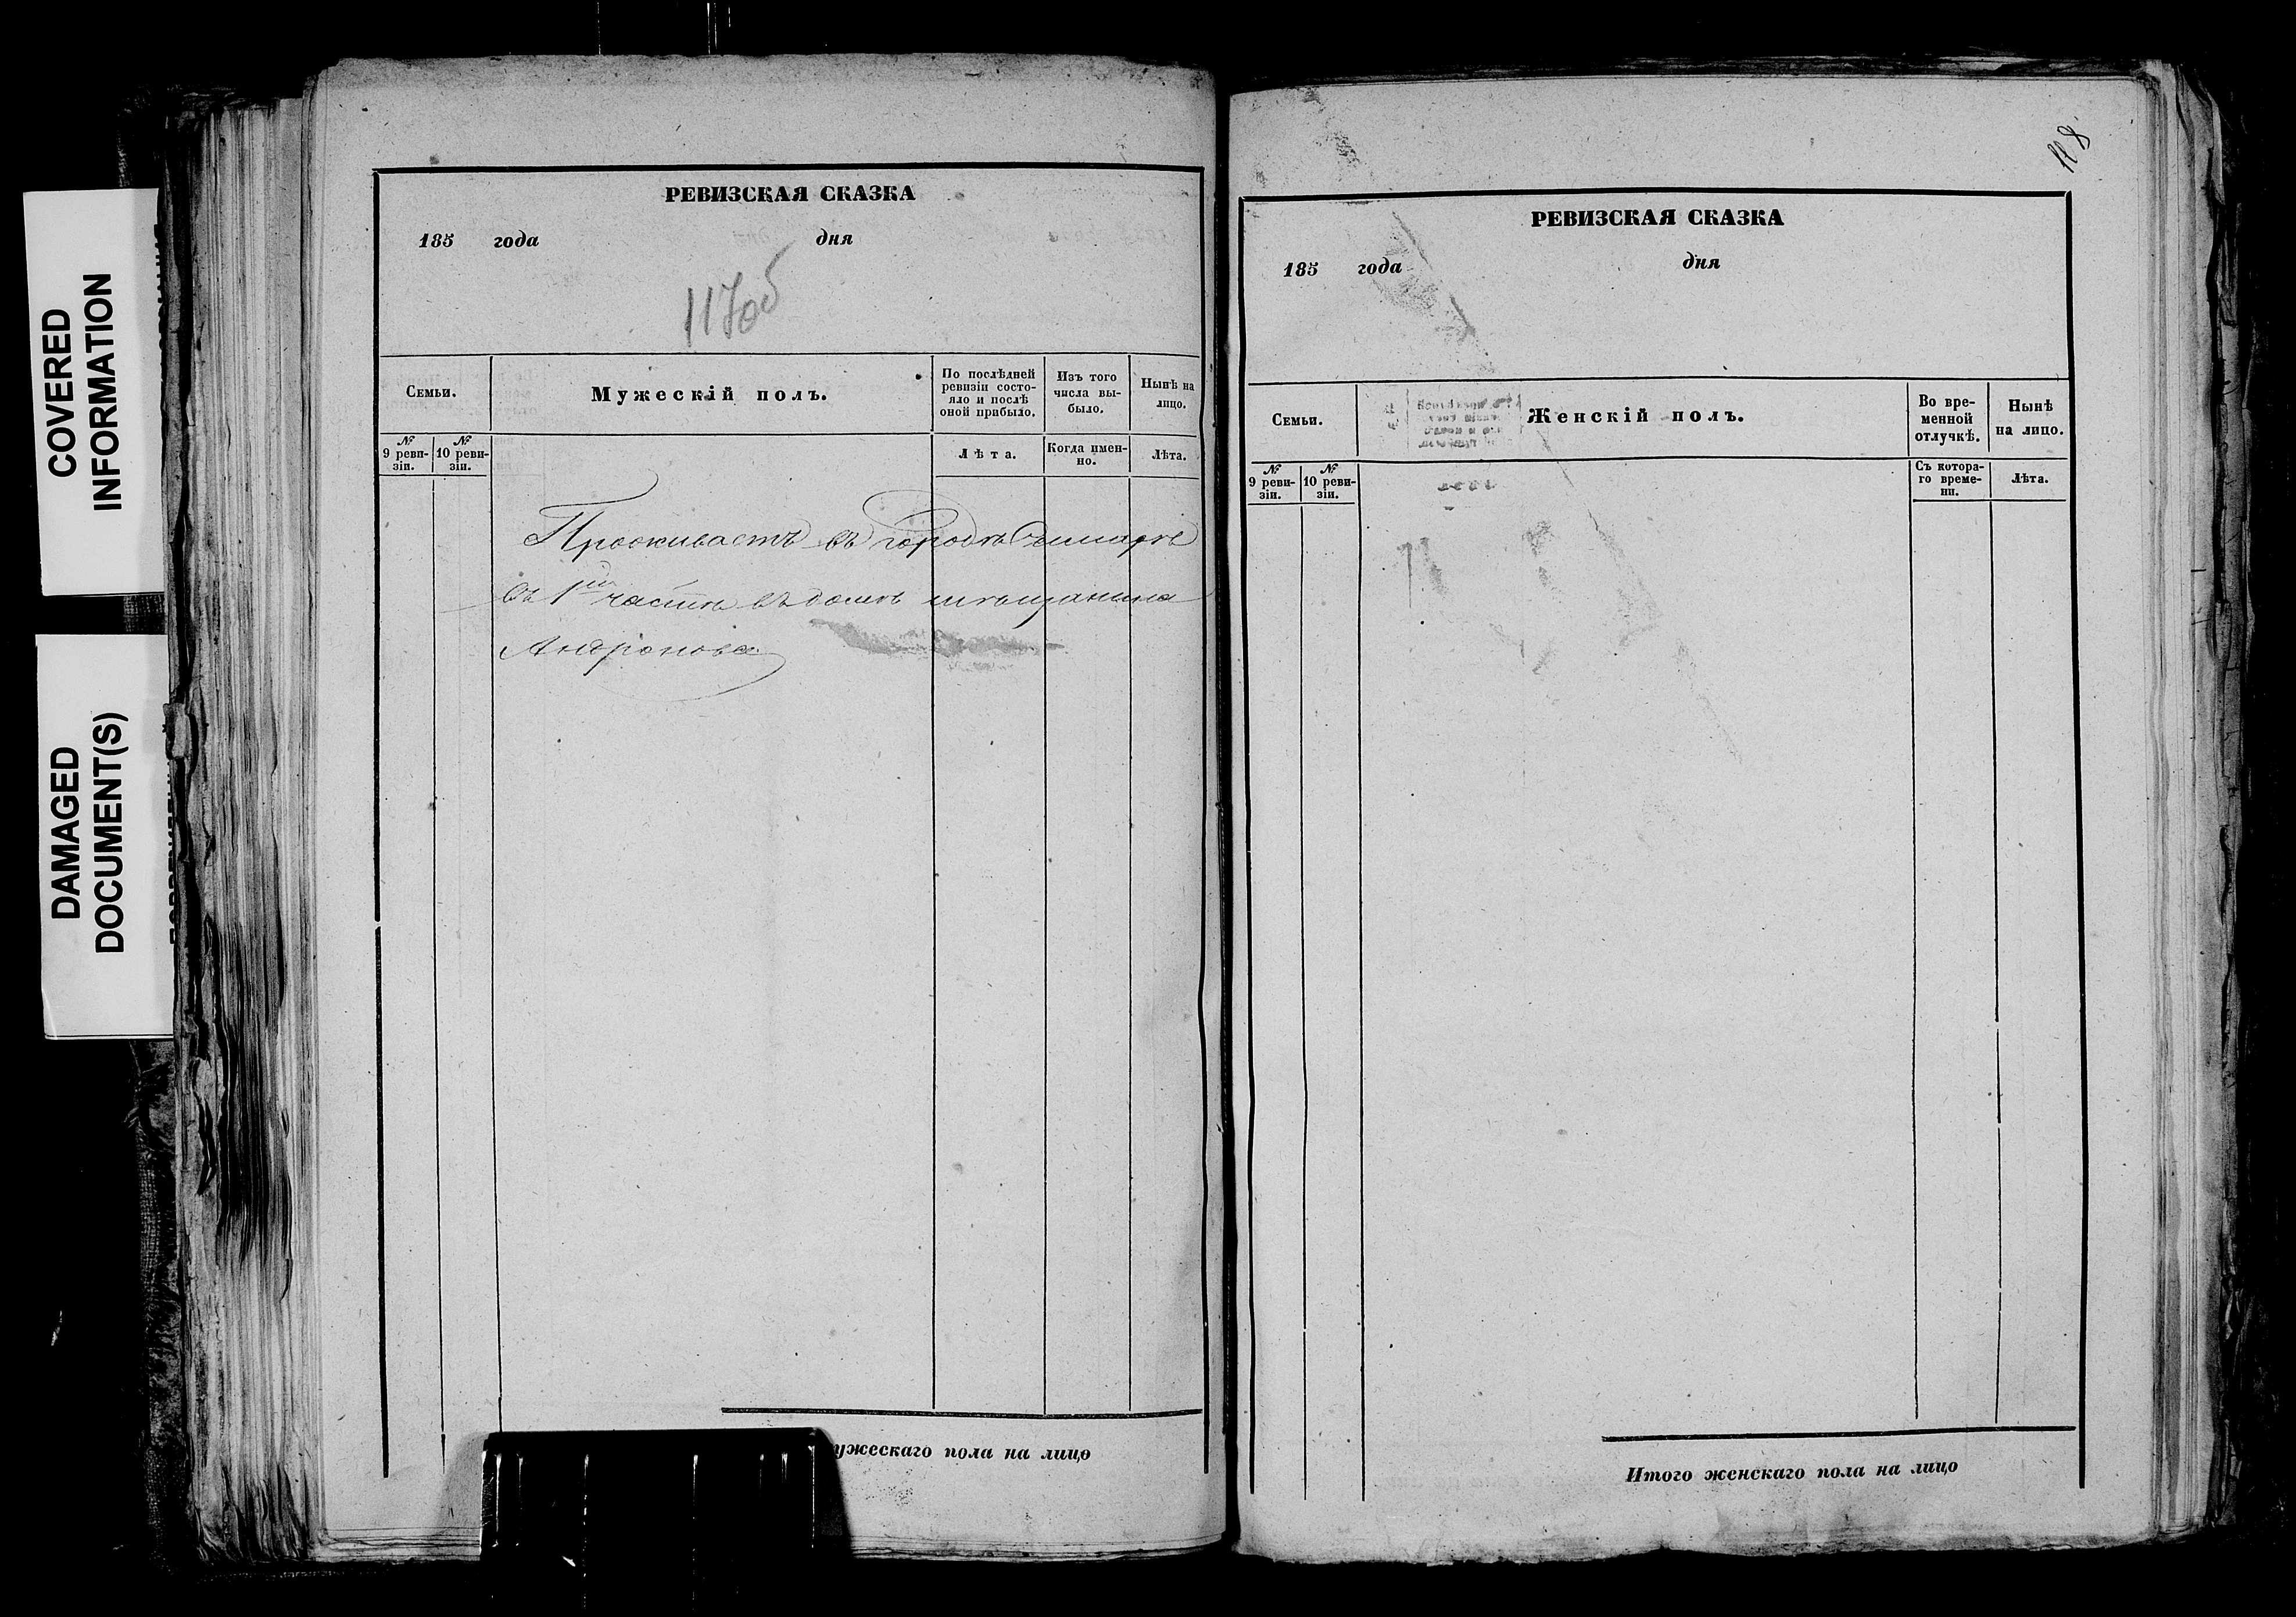 COVERED
INFORMATION
DAMAGED
DOCUMENT(S)
РЕВИЗСКАЯ СКАЗКА
185 года дня
117об
Семьи.
Мужескій полъ.
По послѣдней
ревизіи состо-
яло и послѣ
оной прибыло.
Изъ того
числа вы-
было.
Нынѣ на
лицо.
№
9 реви-
зіи.
№
10 реви-
зіи.
Лѣта.
Когда имен-
но.
Лѣта.
Проживаетъ въ городѣ
въ 1й части въ домѣ мѣщанина
Андронова
ужескаго пола на лицо
118
РЕВИЗСКАЯ СКАЗКА
185 года дня
Семьи.
Женскій полъ.
Во вре-
менной
отлучкѣ.
Нынѣ
на лицо.
№
9 реви-
зіи.
№
10 реви-
зіи.
Съ котора-
го време-
ни.
Лѣта.
Итого женскаго пола на лицо